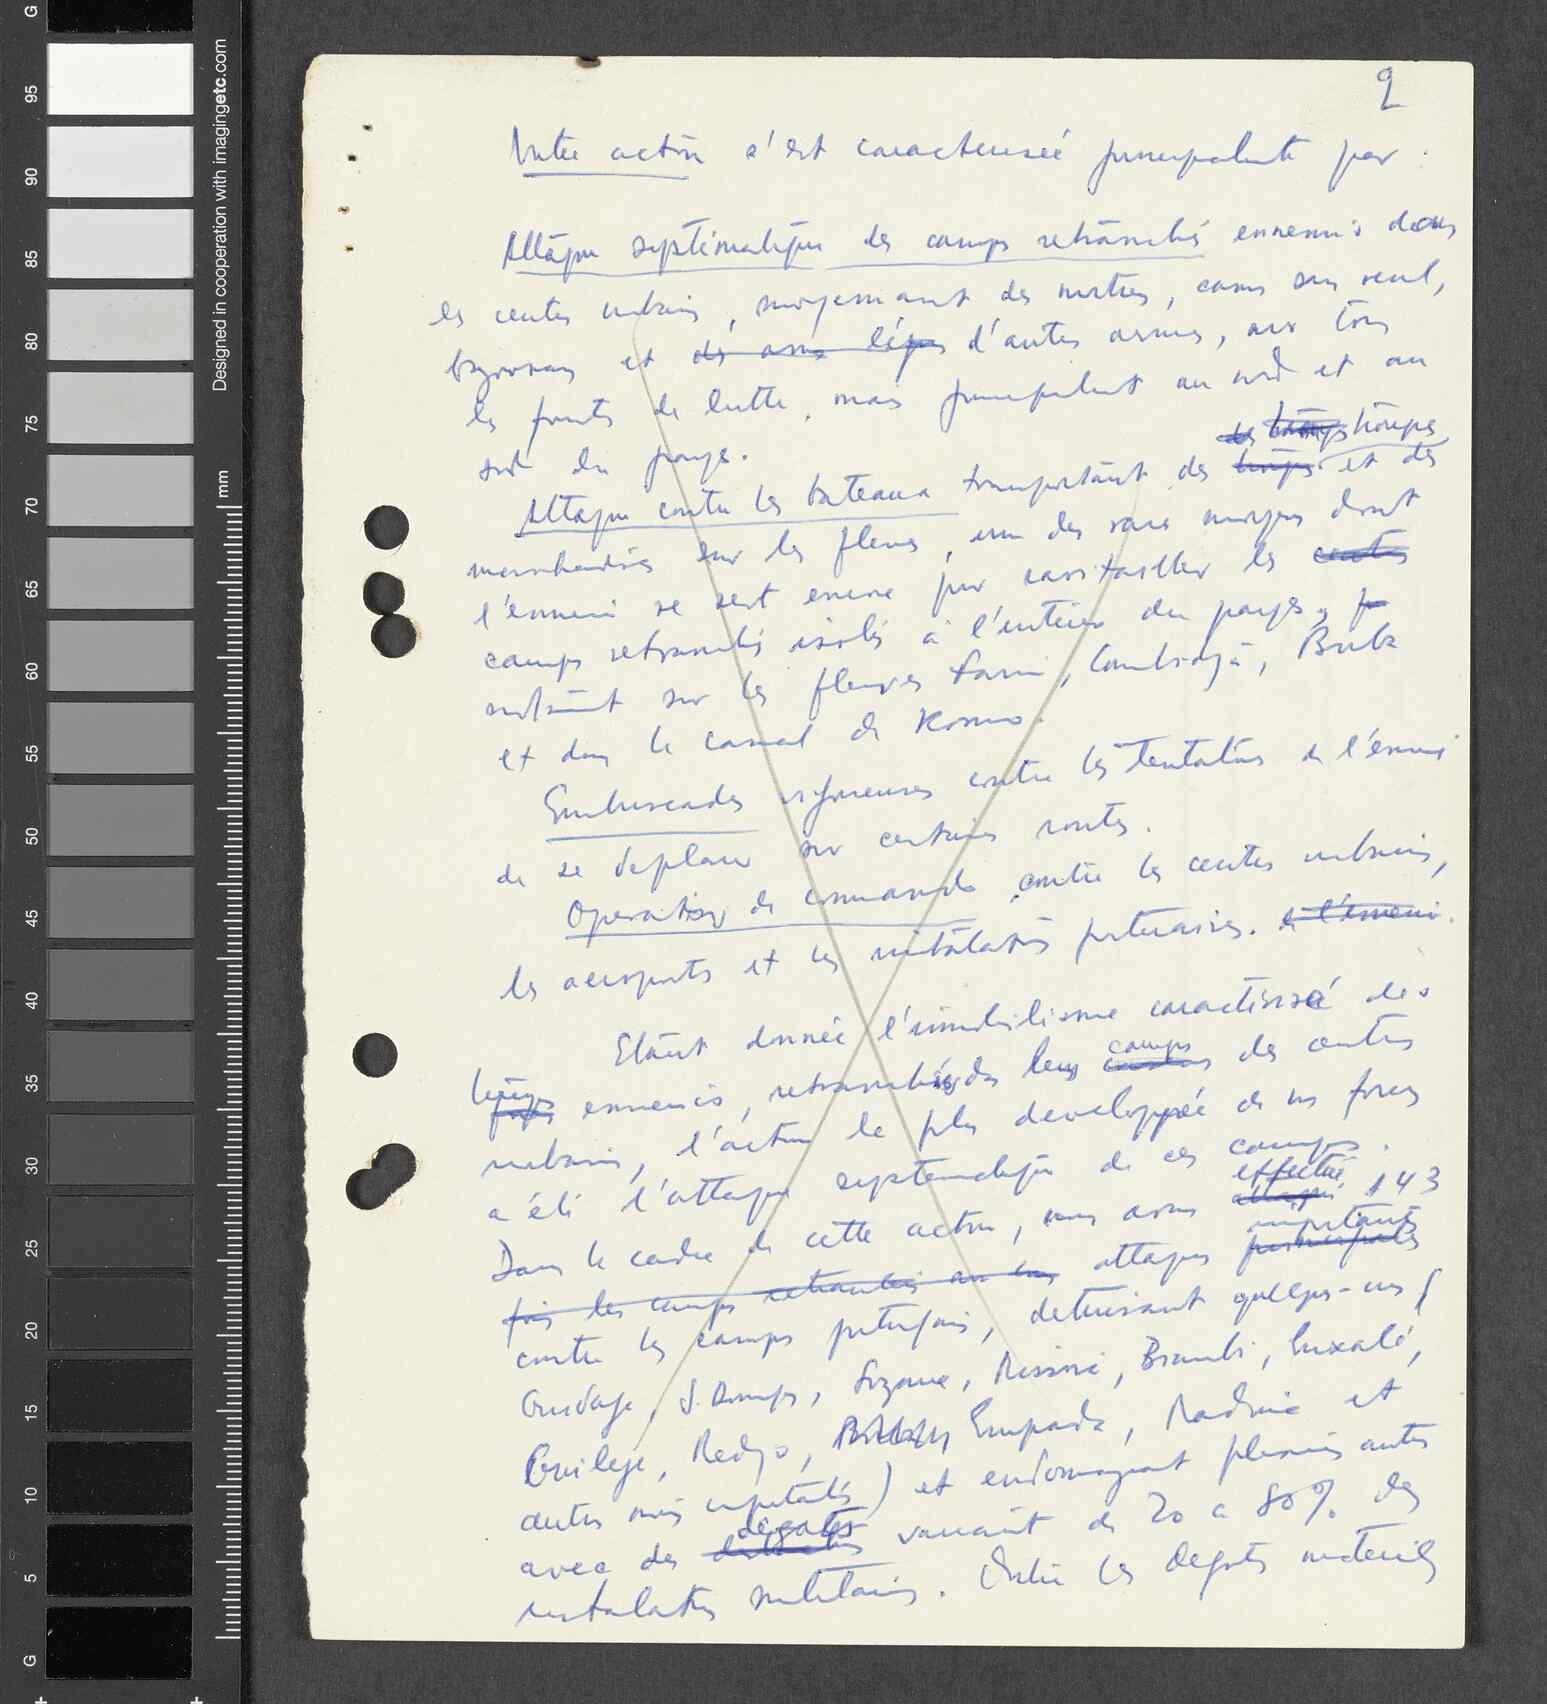 2
Notre action s'est caracterisée principalement par :
Attaque systématique des camps retranchés ennemis dans
les centres urbains, moyennant des mortiers, canons sans recul,
bazookas et des armes légères d'autres armes, sur tous
les fronts de lutte, mais principalement au nord et au
sud du pays.
des troupes
Attaque contre les bateaux transportant des troupes et des
marchandises sur les fleuves, un des rares moyens dont
l'ennemi se sert encore pour ravitailler les centres
camps retranchés isolés à l'intérieur du pays,
notamment sur les fleuves Farim, Combidjã, Buba
et dans le canal de
Embuscades vigoureuses contre les tentatives de l'ennemi
de se deplacer sur certaines routes.
Operations de commando contre les centres urbains,
les aeroports et les installations portuaires. de l'ennemi.
Etant donnée l'immobilisme caracterisé des
troupes ennemis, retranchés dans leurs camps des centres
urbains, l'action la plus developpée de nos forces
a été l'attaque systematique de ces camps.
effectué
Dans le cadre de cette action, nous avons attaqué 143
importants
fois les camps retranchés attaques principales
contre les camps portugais, detruisant quelques-uns (
Guidage, S. Domingos, Suzana, Bissorã, Brambi, Enxalé,
Guileje, Empada, Madina et
autres moins importants) et endomageant plusieurs autres
degats
avec des variant de 20 a 80% des
installations militaires. Outre les degats materiels
G
95
90
85
80
75
70
65
60
55
50
45
40
35
30
25
20
15
10
5
G
mm
Designed in cooperation with imagingetc.com